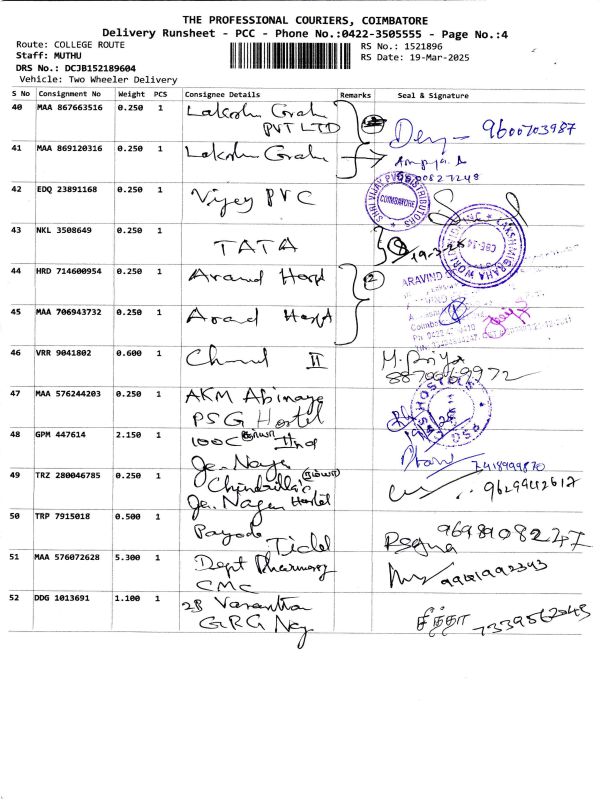 THE PROFESSIONAL COURIERS, COIMBATORE
Delivery Runsheet - PCC - Phone No.:0422-3505555 - Page No.:4
Route: COLLEGE ROUTE
RS No.: 1521896
Staff: MUTHU
RS Date: 19-Mar-2025
DRS No.: DCJB152189604
Vehicle: Two Wheeler Delivery
S No Consignment No Weight PCS Consignee Details Remarks Seal & Signature
40 MAA 867663516 0.250 1 Lakshmi Grah
PVT LTD
9600703987
41 MAA 869120316 0.250 1 Lakshmi Grah
42 EDQ 23891168 0.250 1 Vijey PVC
SHRI VIJAY PVC DISTRIBUTORS
COIMBATORE
43 NKL 3508649 0.250 1 TATA
19-3-25
44 HRD 714600954 0.250 1 Arand Hospt 2
ARAVIND
45 MAA 706943732 0.250 1 Arand Hospt
46 VRR 9041802 0.600 1 II
M. Priya
8870969972
47 MAA 576244203 0.250 1 AKM Abinaya
PSG Hostel
48 GPM 447614 2.150 1 100C
Je. Nagar
7418999870
49 TRZ 280046785 0.250 1
Je. Nagar Hostel
9629942617
50 TRP 7915018 0.500 1
Tidel
9698908247
51 MAA 576072628 5.300 1 Dept Pharmacy
CMC
52 DDG 1013691 1.100 1 2B Vasantha
GRG Nag
சித்ரா
7339562045